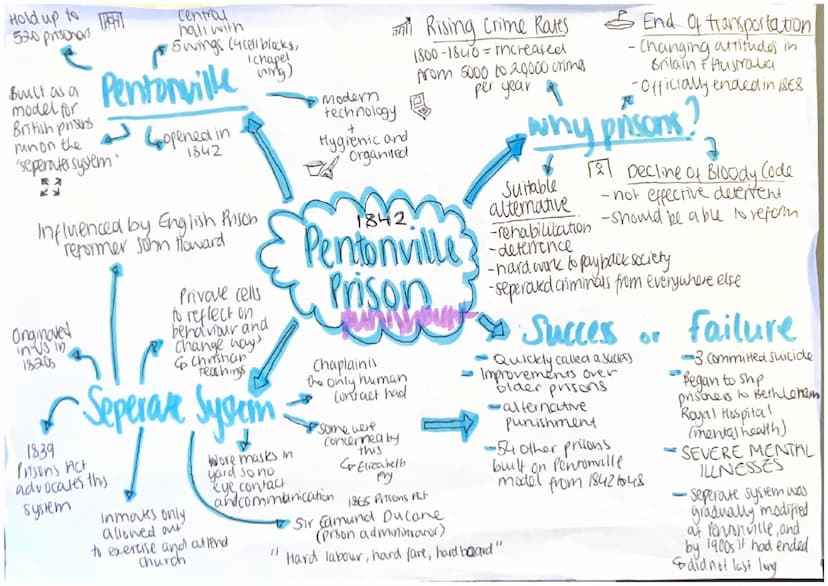 Hold up to
520 prisoners
Central
hall with
5 wings (4 cell blocks,
1 chapel
wing)
Pentonville
Built as a
model for
British prisons
run on the
'seperate system'
opened in
1842
Modern
technology
+
Hygienic and
organised
Rising Crime Rates
1800-1840 = increased
from 5000 to 20,000 crimes
per year
End Of transportation
- Changing attitudes in
Britain + Australia
- Officially ended in 1868
Why prisons?
Suitable
alternative
- rehabilitation
- deterrence
- hard work to payback society
- seperated criminals from everywhere else
Decline of Bloody Code
- not effective deterrent
- should be able to reform
1842
Pentonville
Prison
Influenced by English Prison
reformer John Howard
Originated
in US in
1820s
Private cells
to reflect on
behaviour and
change ways
↳ Christian
teachings
Seperate System
Chaplain is
the only human
contact had
some were
concerned by
this
↳ Elizabeth
Fry
1839
Prisons Act
advocates this
system
Inmates only
allowed out
to exercise and attend
church
Wore masks in
yard so no
eye contact
and communication
1865 Prisons Act
Sir Edmund DuCane
(prison administrator)
"Hard labour, hard fare, hard board"
Success or Failure
- Quickly called a success
- Improvements over
older prisons
- alternative
punishment
- 54 other prisons
built on Pentonville
model from 1842 to 48
- 3 committed suicide
- Began to ship
prisoners to Bethleham
Royal Hospital
(mental health)
- SEVERE MENTAL
ILLNESSES
- Seperate system was
gradually modified
at Pentonville, and
by 1900s it had ended
↳ did not last long